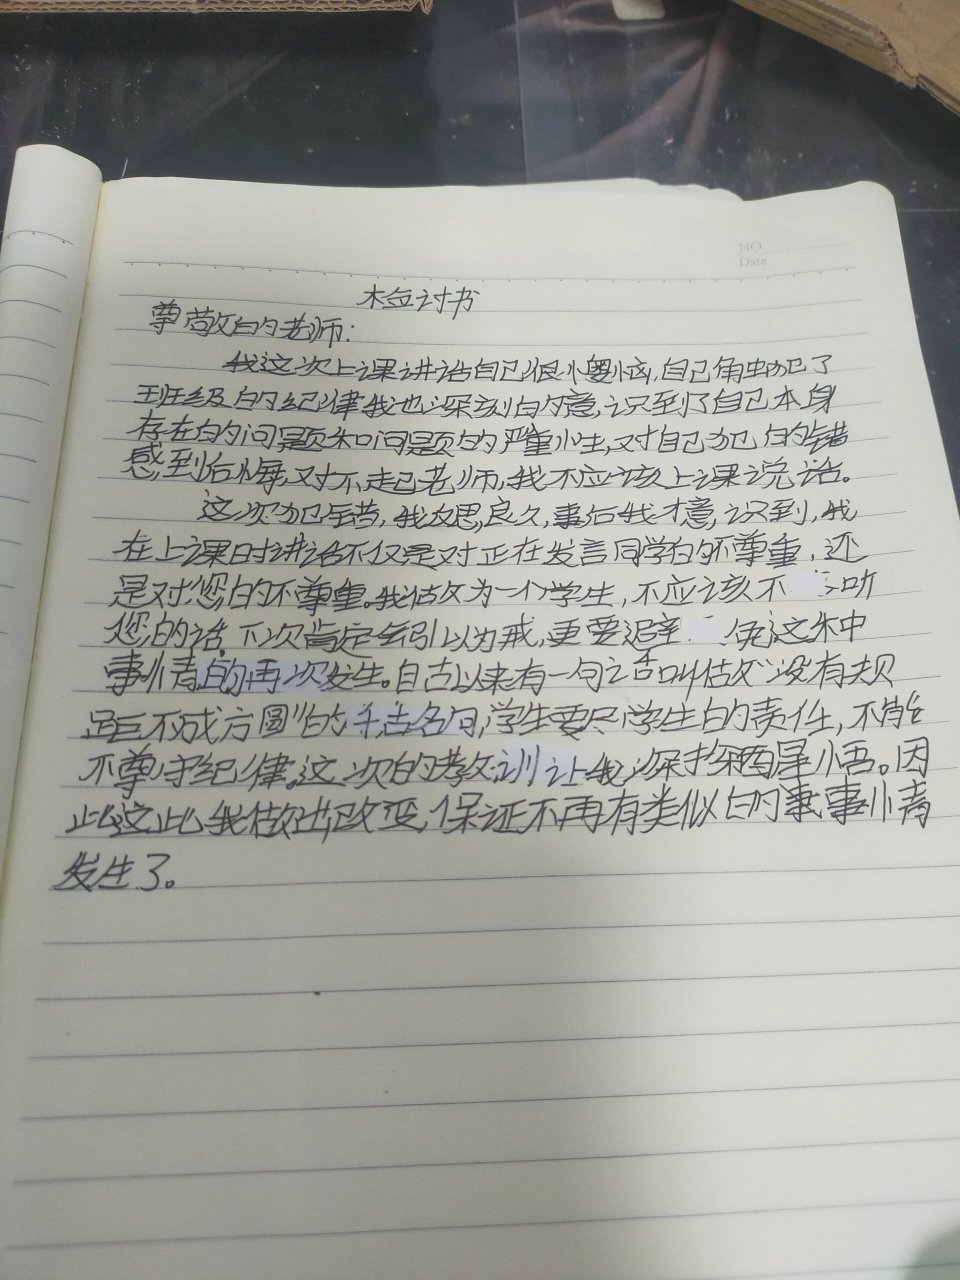 NO
Date
检讨书
尊敬的老师:
我这次上课讲话自己很懊恼,自己触犯了
班级的纪律我也深刻的意,识到了自己本身
存在的问题和问题的严重性,对自己犯的错
感到后悔,对不起老师,我不应该上课说话。
这次犯错,我思,良久,事后我才意,识到,我
在上课时讲话不仅是对正在发言同学的不尊重,还
是对您的不尊重。我做为一个学生,不应该不听
您的话,下次肯定会引以为戒,更要避免这种
事情的再次发生。自古以来有一句话叫做“没有规
距不成方圆”的千古名句,学生要尽学生的责任,不能
不尊守纪律。这次的教训让我深深醒悟。因
此这此我做出改变,保证不再有类似的事事情
发生了。